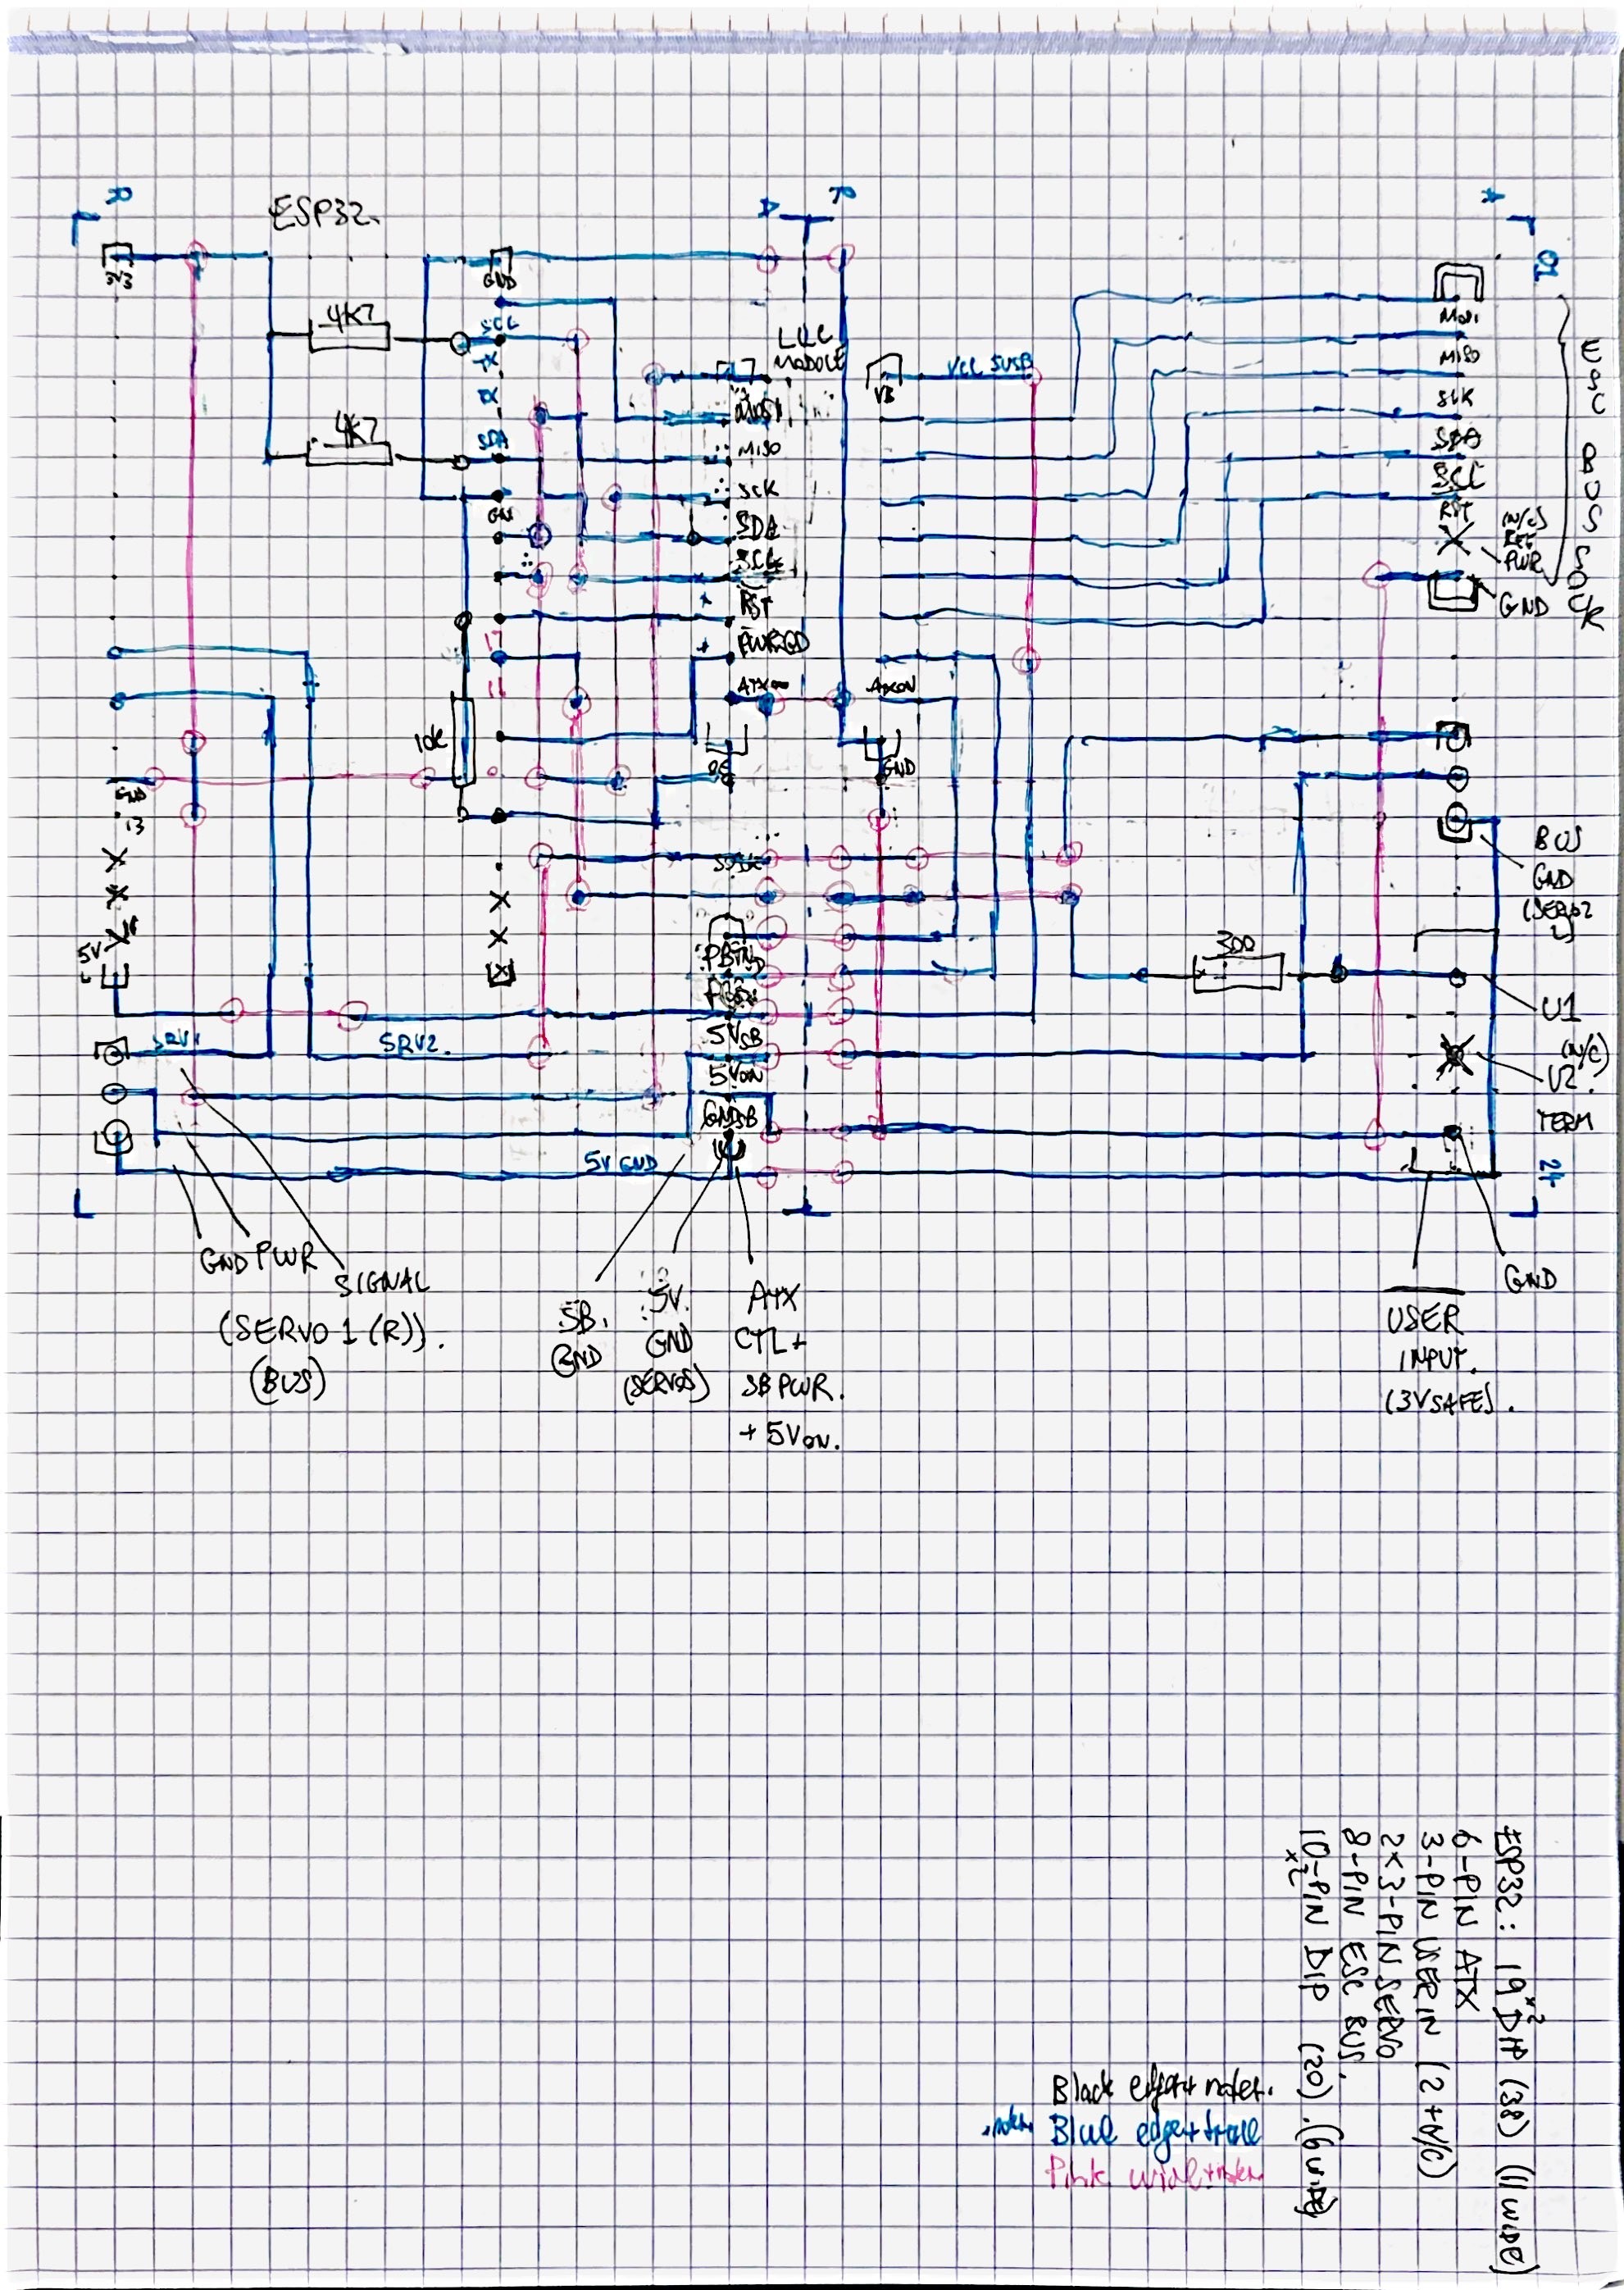 R
A
R
A
ESP32.
01
3V3
GND
4K7
SCL
TX
RX
LLC
MODULE
VCC 5USB
VB
MOSI
MISO
SCK
SDA
SCL
RST
(N/C)
PWR
GND
ESC BUS SOCK
4K7
SDA
GN
MOSI
MISO
SCK
SDA
SCL
RST
PWRGD
17
16
ATXON
ATXON
10K
GND
GND
13
5V
BUS
GND
(SERVO2
L)
300
U1
(N/C)
U2.
TERM
24
5VSB
5VON
GNDSB
SRV1
SRV2.
5V GND
GND PWR
SIGNAL
(SERVO 1 (R)).
(BUS)
SB.
GND
5V.
GND
(SERVOS)
ATX
CTL+
SB PWR.
+ 5VON.
GND
USER
INPUT.
(3V SAFE).
ESP32: 19x2 DIP (38) (11 WIDE)
6-PIN ATX
3-PIN USER IN (2+N/C)
2x3-PIN SERVO
8-PIN ESC BUS.
10-PIN DIP (20). (6 WIDE)
x2
Black edge+notes.
Blue edge+trace
Pink wide+notes